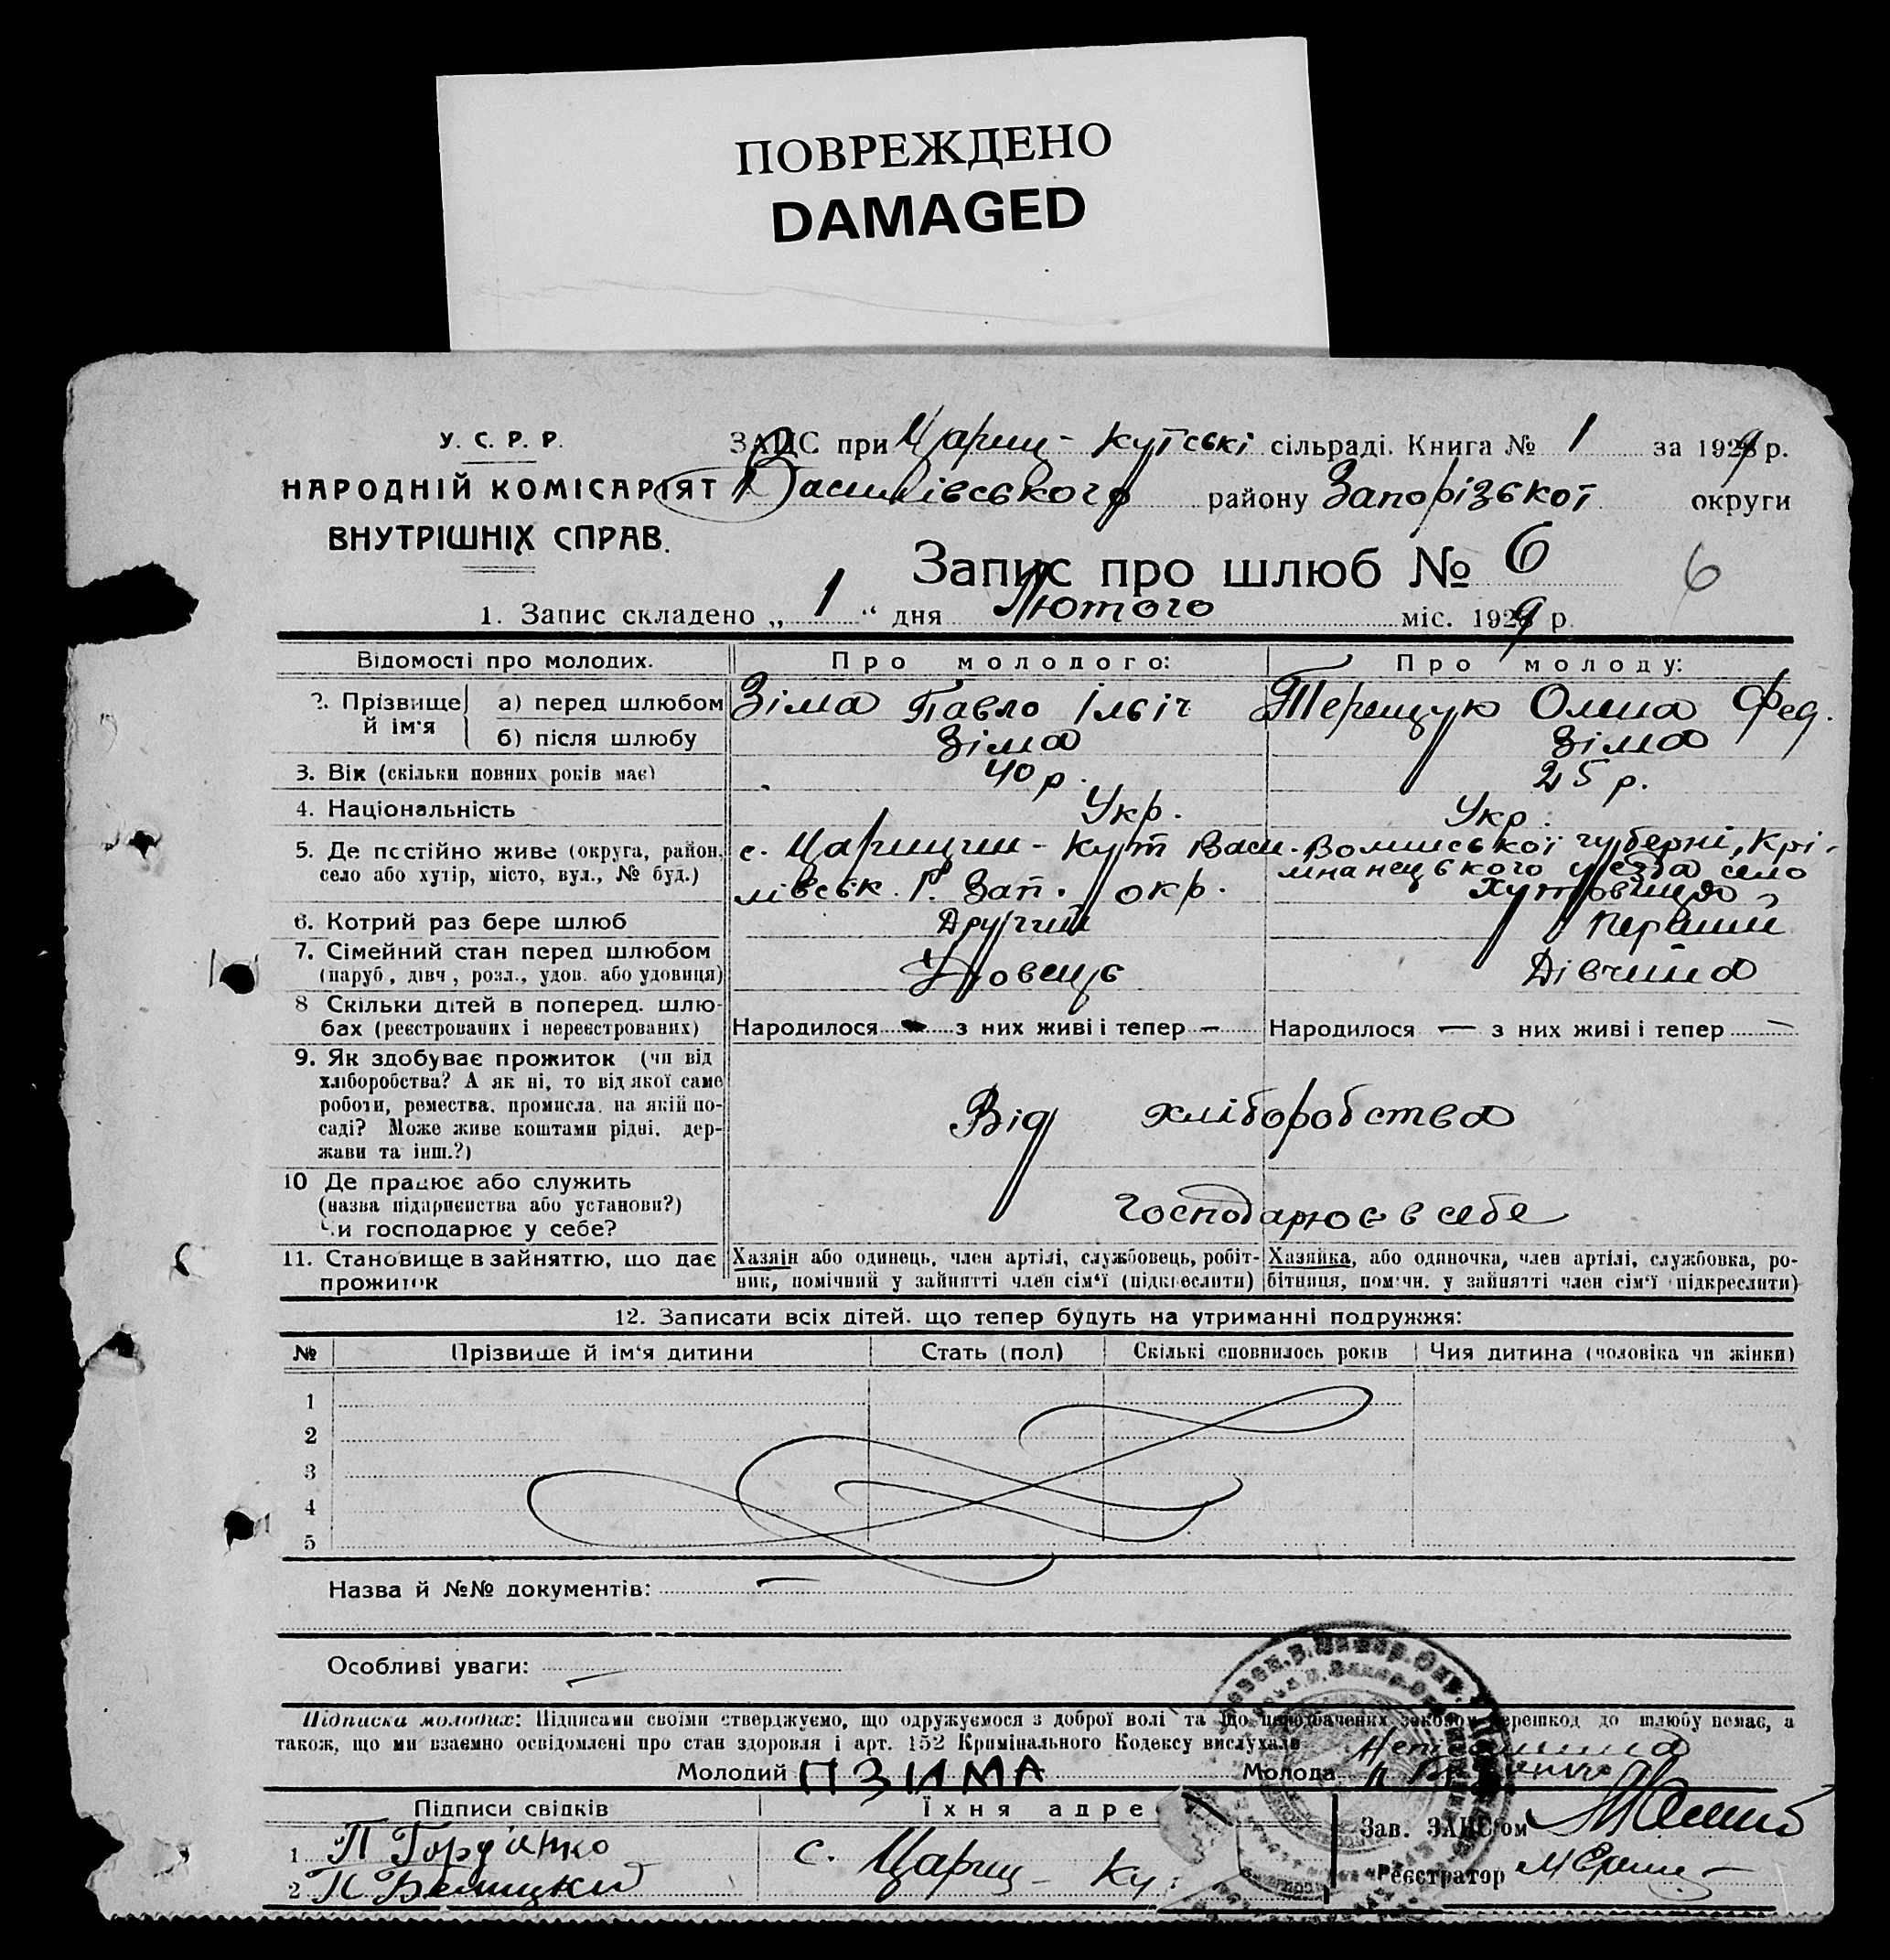 ПОВРЕЖДЕНО
DAMAGED
У. С. Р. Р.
НАРОДНІЙ КОМІСАРІЯТ
ВНУТРІШНІХ СПРАВ.
ЗАЦС при Цариц- Кутські сільраді. Книга № 1 за 1929 р.
Василівського району Запорізької округи
Запис про шлюб № 6
6
1. Запис складено „ 1 “ дня Лютого міс. 1929 р.
Відомості про молодих. Про молодого: Про молоду:
2. Прізвище й ім'я а) перед шлюбом Зіма Павло Ілвіч Терещук Олина Фед.
б) після шлюбу Зіма Зіма
3. Вік (скільки повних років має) 40 р. 25 р.
4. Національність Укр. Укр.
5. Де постійно живе (округа, район, с. Царицин- Кут Васи- Волинської губерні, Крі-
село або хутір, місто, вул., № буд.) лівськ. Р. Зап. окр. мнанецького уезда село
6. Котрий раз бере шлюб Другий Перший
7. Сімейний стан перед шлюбом
(паруб., дівч., розл., удов. або удовиця) Удовець Дівчина
8 Скільки дітей в поперед. шлю-
бах (реєстрованих і нереєстрованих) Народилося — з них живі і тепер — Народилося — з них живі і тепер —
9. Як здобуває прожиток (чи від
хліборобства? А як ні, то від якої саме
роботи, ремества, промисла, на якій по-
саді? Може живе коштами рідні, дер-
жави та інш.?)
Від хліборобства
10 Де працює або служить
(назва підприємства або установи?)
Чи господарює у себе?
Господарює в себе
11. Становище в зайняттю, що дає
прожиток
Хазяїн або одинець, член артілі, службовець, робіт-
ник, помічний у зайнятті член сім'ї (підкреслити)
Хазяйка, або одиночка, член артілі, службовка, ро-
бітниця, помічн. у зайнятті член сім'ї підкреслити)
12. Записати всіх дітей, що тепер будуть на утриманні подружжя:
№ Прізвище й ім'я дитини Стать (пол) Скількі сповнилось років Чия дитина (чоловіка чи жінки)
1
2
3
4
5
Назва й №№ документів: —
Особливі уваги: —
Підписка молодих: Підписами своїми стверджуємо, що одружуємося з доброї волі та що непродбачених законом перешкод до шлюбу немає, а
також, що ми взаємно освідомлені про стан здоровля і арт. 152 Кримінального Кодексу вислухали
Молодий П ЗІМА Молода
Підписи свідків Їхня адре
Зав. ЗАЦС'ом
1 П Гордієнко с. Цариц- Ку
2 П Белицкий
Реєстратор